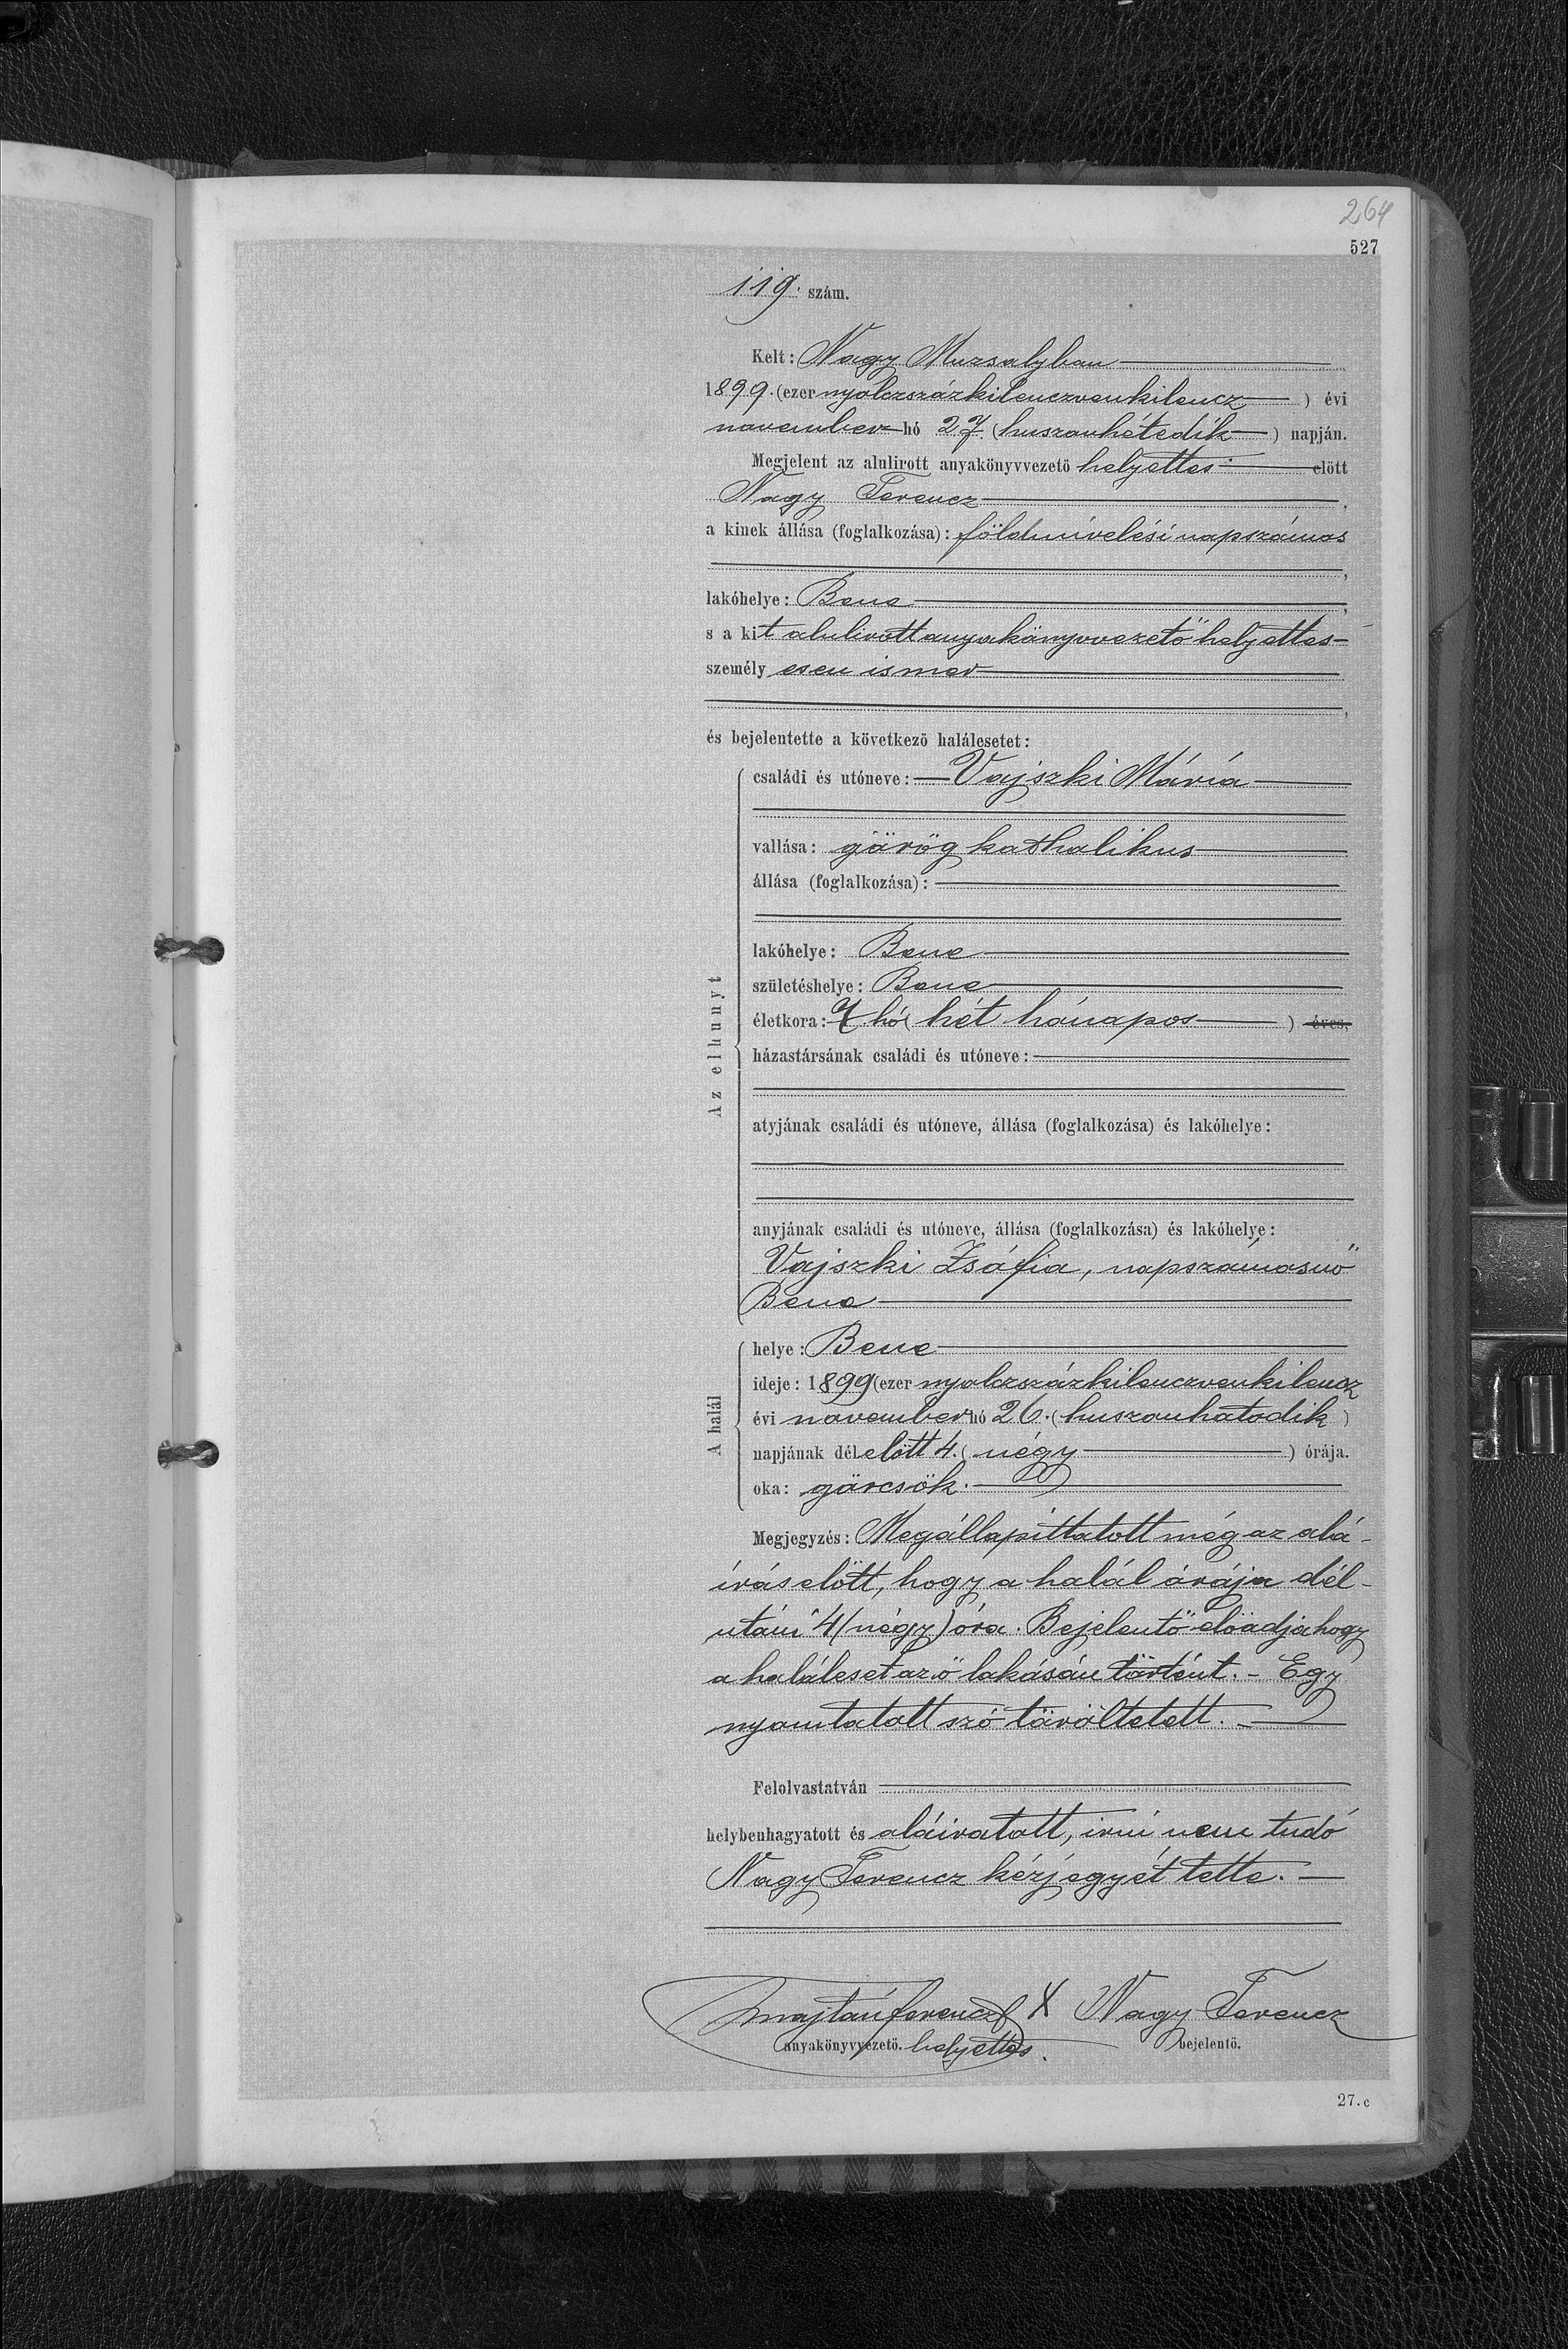 264
527
119. szám.
Kelt: Nagy Muzsalyban
1899. (ezer nyolczszázkilenczvenkilencz) évi
november hó 27. (huszonhétedik) napján.
Megjelent az alulirott anyakönyvvezető helyettes előtt
Nagy Ferencz,
a kinek állása (foglalkozása): földmívelési napszámos
,
lakóhelye: Bene,
s a kit alulirott anyakönyvvezető helyettes
személyesen ismer
,
és bejelentette a következő halálesetet:
Az elhunyt
családi és utóneve: Vajszki Mária
vallása: görög katholikus
állása (foglalkozása):
lakóhelye: Bene
születéshelye: Bene
életkora: 7 hó (hét hónapos) éves,
házastársának családi és utóneve:
atyjának családi és utóneve, állása (foglalkozása) és lakóhelye:
anyjának családi és utóneve, állása (foglalkozása) és lakóhelye:
Vajszki Zsófia, napszámosnő
Bene
A halál
helye: Bene
ideje: 1899 (ezer nyolczszázkilenczvenkilencz
évi november hó 26. (huszonhatodik)
napjának délelőtt 4. (négy) órája.
oka: görcsök.
Megjegyzés: Megállapíttatott még az alá-
írás előtt, hogy a halál órája dél-
utáni 4 (négy) óra. Bejelentő előadja hogy
a haláleset az ő lakásán történt. - Egy
nyomtatott szó töröltetett. -
Felolvastatván
helybenhagyatott és aláiratott, irni nem tudó
Nagy Ferencz kézjegyét tette. -
Majtáni Ferencz X Nagy Ferencz
anyakönyvvezető. helyettes. bejelentő.
27. c